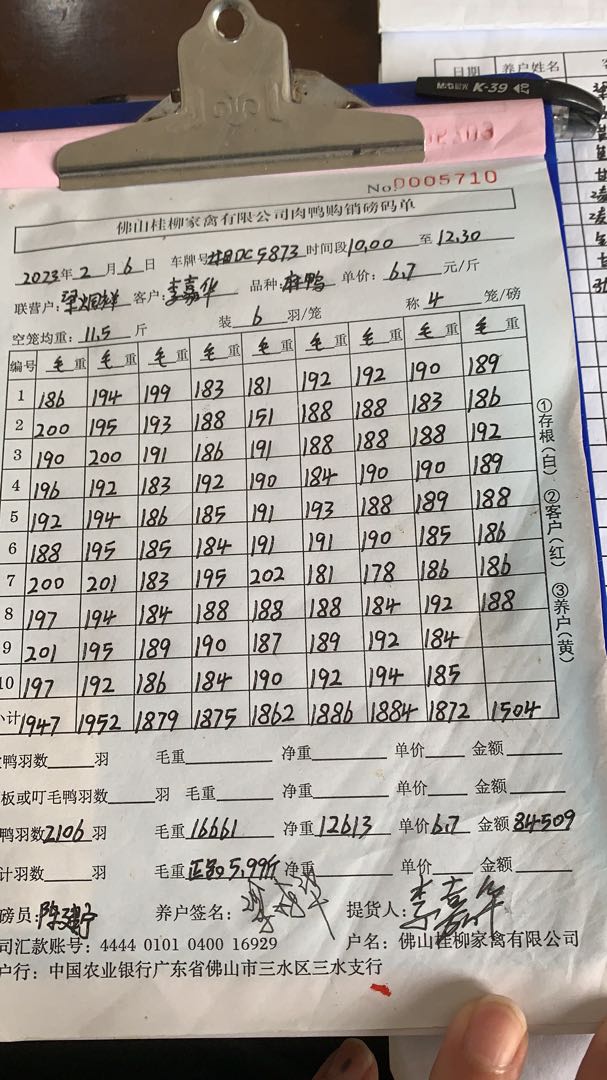 日期 养户姓名
M&G K-39
No. 0005710
佛山桂柳家禽有限公司肉鸭购销磅码单
2023年2月6日 车牌号 DC5873 时间段10,00 至 12.30
联营户: 客户:李嘉华 品种:麻鸭 单价:6.7 元/斤
空笼均重:11.5 斤 装 6 羽/笼 称 4 笼/磅
编号 毛重 毛重 毛重 毛重 毛重 毛重 毛重 毛重 毛重
1 186 194 199 183 181 192 192 190 189
2 200 195 193 188 151 188 188 183 186
3 190 200 191 186 191 188 188 188 192
4 196 192 183 192 190 184 190 190 189
5 192 194 186 185 191 193 188 189 188
6 188 195 185 184 191 191 190 185 186
7 200 201 183 195 202 181 178 186 186
8 197 194 184 188 188 188 184 192 188
9 201 195 189 190 187 189 192 184
10 197 192 186 184 190 192 194 185
小计 1947 1952 1879 1875 1862 1886 1884 1872 1504
①存根(白) ②客户(红) ③养户(黄)
鸭羽数 羽 毛重 净重 单价 金额
板或叮毛鸭羽数 羽 毛重 净重 单价 金额
鸭羽数2106羽 毛重16661 净重12613 单价6.7 金额84509
计羽数 羽 毛重 5.99斤 净重 单价 金额
磅员: 养户签名: 提货人:李嘉华
司汇款账号:4444 0101 0400 16929 户名:佛山桂柳家禽有限公司
户行:中国农业银行广东省佛山市三水区三水支行